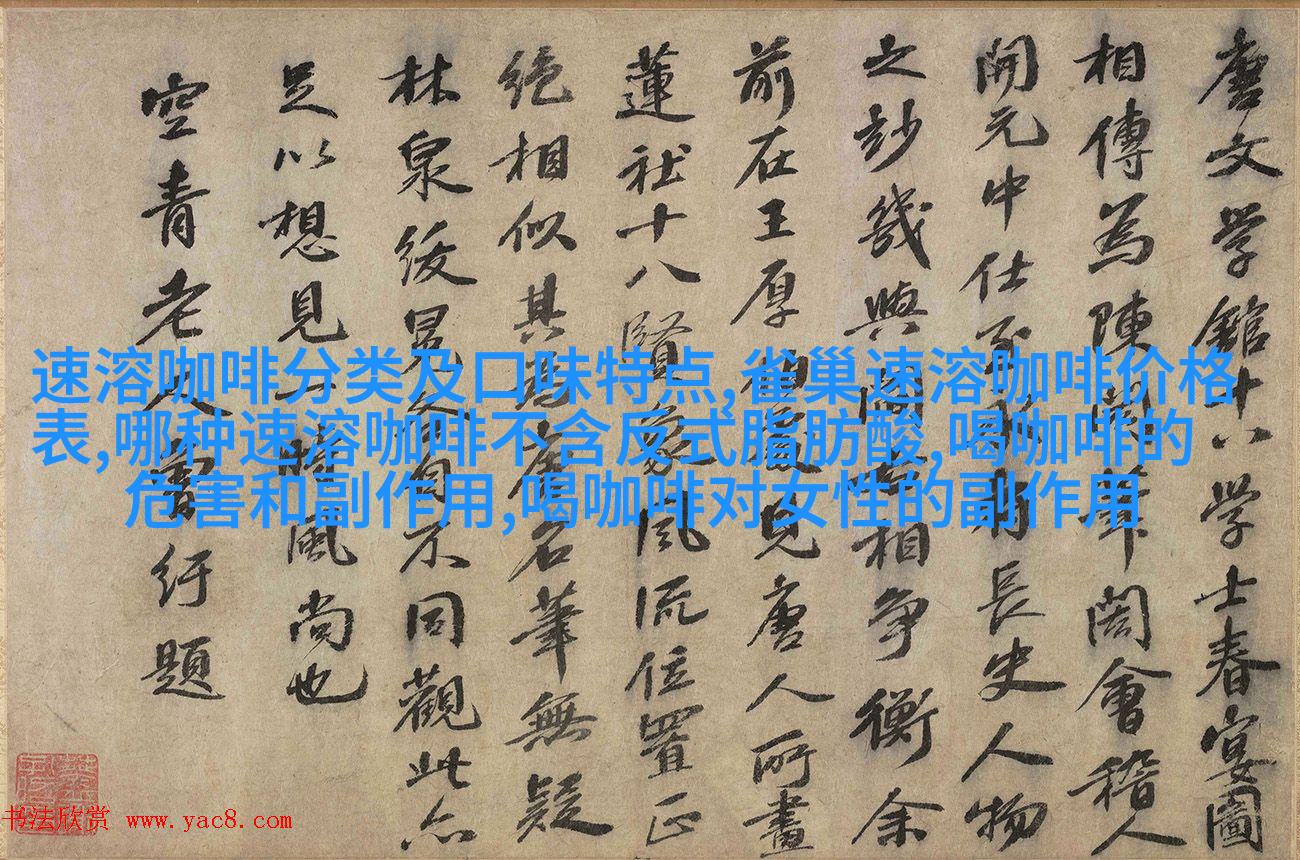 唐文学館十八学士春宴圖
相傳為陳閎筆閎會稽人
開元中仕府長史人物
之妙幾與相爭衡余
前在王厚見唐人所畫
蓮社十八賢風流位置正
絕相似其唐名筆無疑
林泉綬冕自不同觀此亦
足以想見時風尚也
空青老人曾紆題
速溶咖啡分类及口味特点,雀巢速溶咖啡价格
表,哪种速溶咖啡不含反式脂肪酸,喝咖啡的
危害和副作用,喝咖啡对女性的副作用
书法欣赏 www.yac8.com